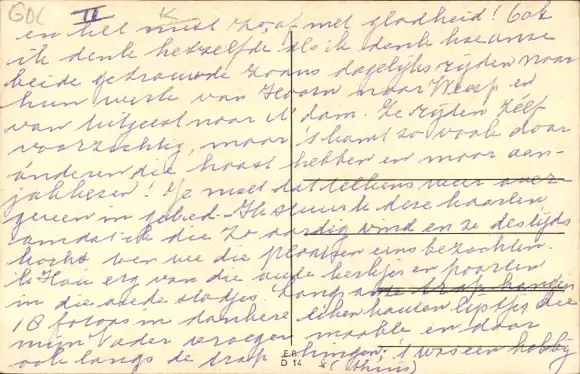 GDL II K
en het met zo, of met gladheid! Ook
ik denk hetzelfde als ik denk hoe onze
beide getrouwde zoons dagelijks rijden naar
hun werk van Hoorn naar Weesp en
van Uitgeest naar A'dam. Ze rijden zelf
voorzichtig, maar 't komt zo vaak door
anderen die haast hebben en maar aan-
jakkeren! Je moet dat telkens weer over
geven in gebed. Ik stuur je deze kaarten
omdat ik die zo aardig vind en ze destijds
kocht toen we die plaatsen eens bezochten.
Ik hou erg van die oude kerkjes en poorten
in die oude stadjes. Langs onze trap hangen
18 foto's in donkere eikenhouten lijstjes die
mijn Vader vroeger maakte en door
ook langs de trap hingen; 't was een hobby
E.B.
D 14
(thuis)